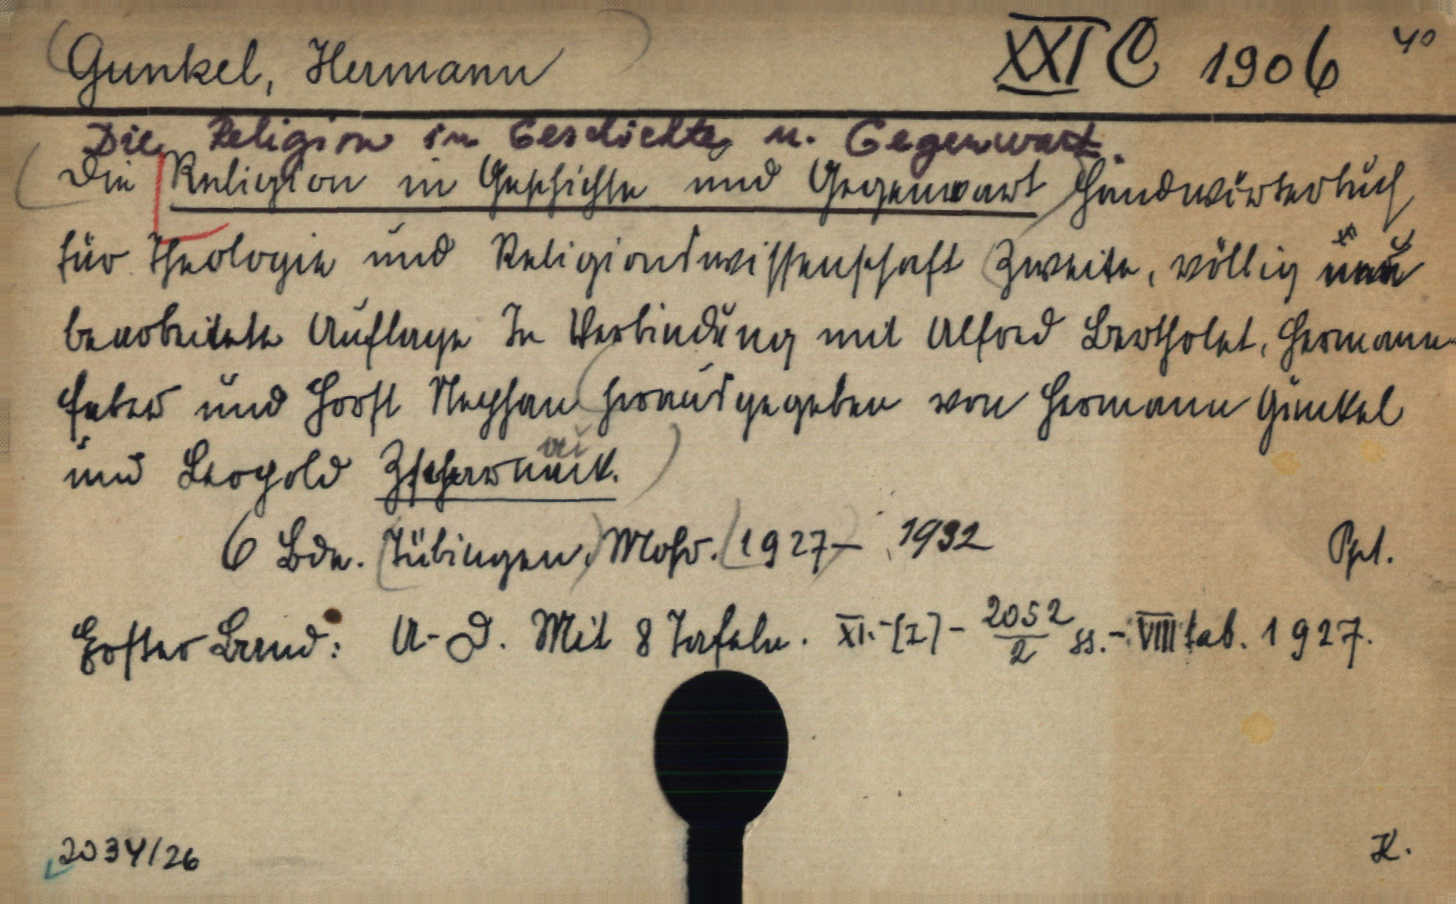 (Gunkel, Hermann) XXI C 1906 40
Die Religion in Geschichte u. Gegenwart.
(Die [Religion in Geschichte und Gegenwart) Handwörterbuch
für Theologie und Religionswissenschaft (Zweite, völlig neu
bearbeitete Auflage In Verbindung mit Alfred Bertholet, Hermann
Faber und Horst Stephan (herausgegeben von Hermann Gunkel
und Leopold Zscharnack.)
6 Bde. (Tübingen,) Mohr. (1927-) 1932 Ppt.
Erster Band: A-D. Mit 8 Tafeln. XI.-[I]- 2052/2 ss.- VIII tab. 1927.
2034/26 K.